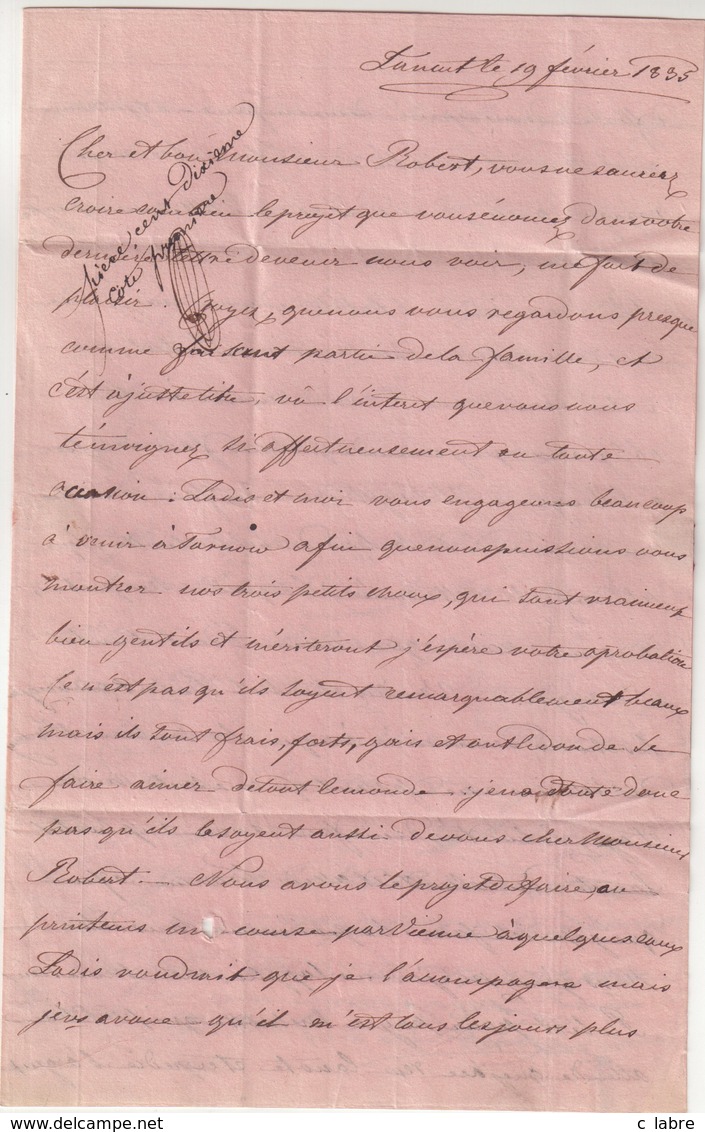 Lancut le 19 février 1835
Cher et bon monsieur Robert, vous ne sauriez
croire combien le projet que vous énoncez dans votre
dernière lettre de venir nous voir, me fait de
plaisir. Croyez, que nous vous regardons presque
comme faisant partie de la famille, et
c'est à juste titre, vû l'interet que vous nous
témoignez si affectueusement en toute
occasion : Ladis et moi vous engageons beaucoup
à venir à Tarnow afin que nous puissions vous
montrer nos trois petits choux, qui sont vraiment
bien gentils et mériteront j'espère votre aprobation
Ce n'est pas qu'ils soyent remarquablement beaux
mais ils sont frais, forts, gais et ont le don de se
faire aimer de tout le monde : je ne doute donc
pas qu'ils le soyent aussi de vous cher Monsieur
Robert. — Nous avons le projet de faire, au
printems une course par Vienne à quelques eaux
Ladis voudrait que je l'acompagne mais
je vs avoue qu'il m'est tous les jours plus
pièce cent dixième
côté première
c labre